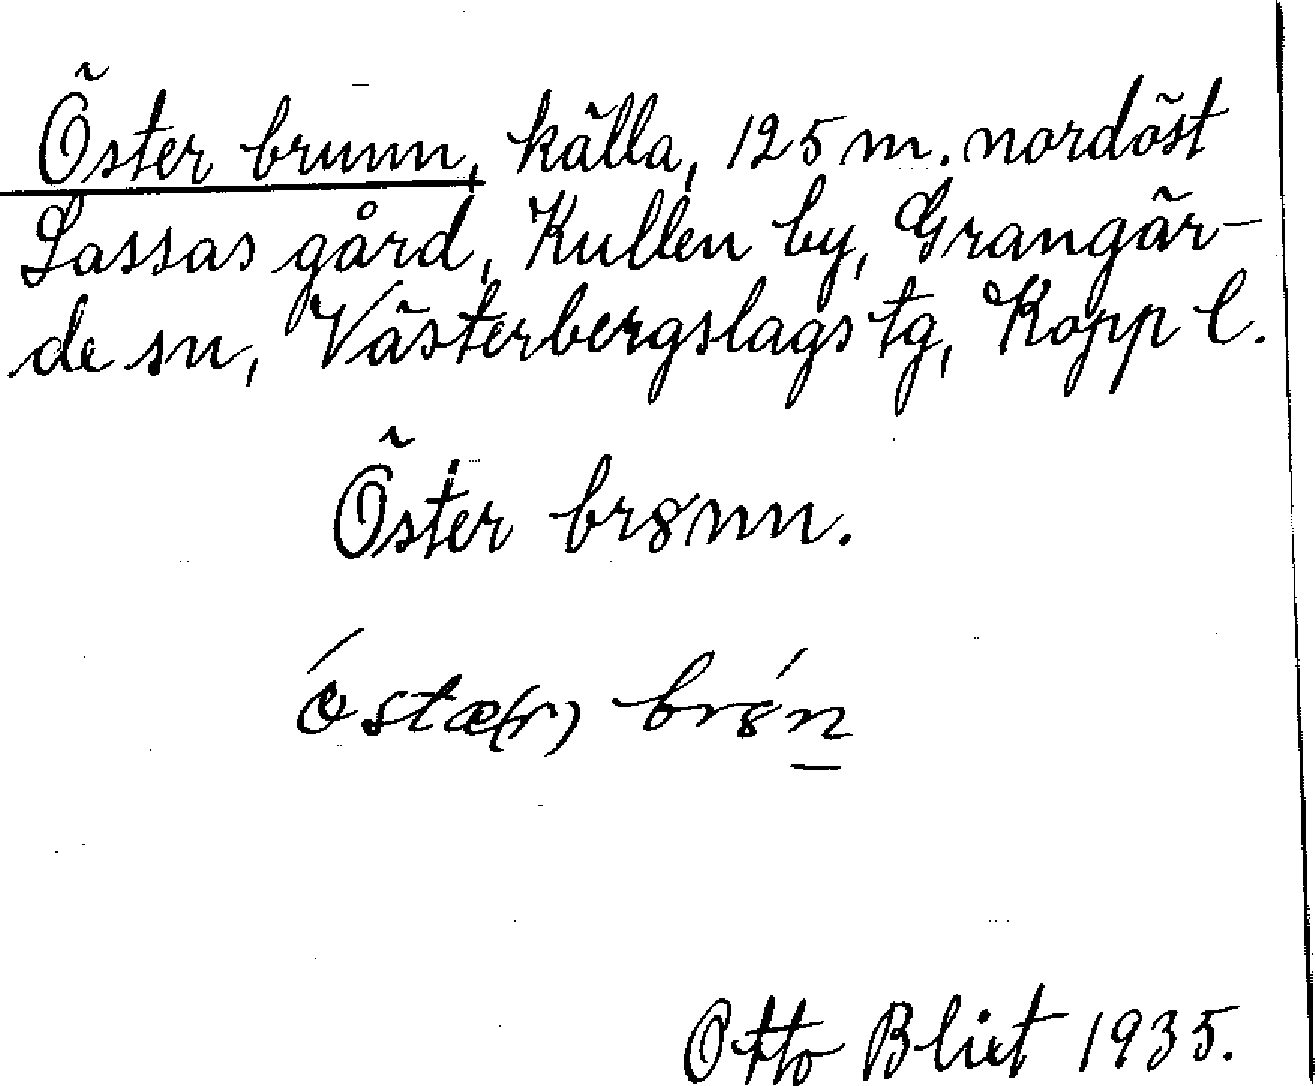 Öster brunn, källa, 125 m. nordöst
Lassas gård, Kullen by, Grangär-
de sn, Västerbergslags tg, Kopp l.
Öster br8nn.
östæ(r) br8́n
Otto Blixt 1935.